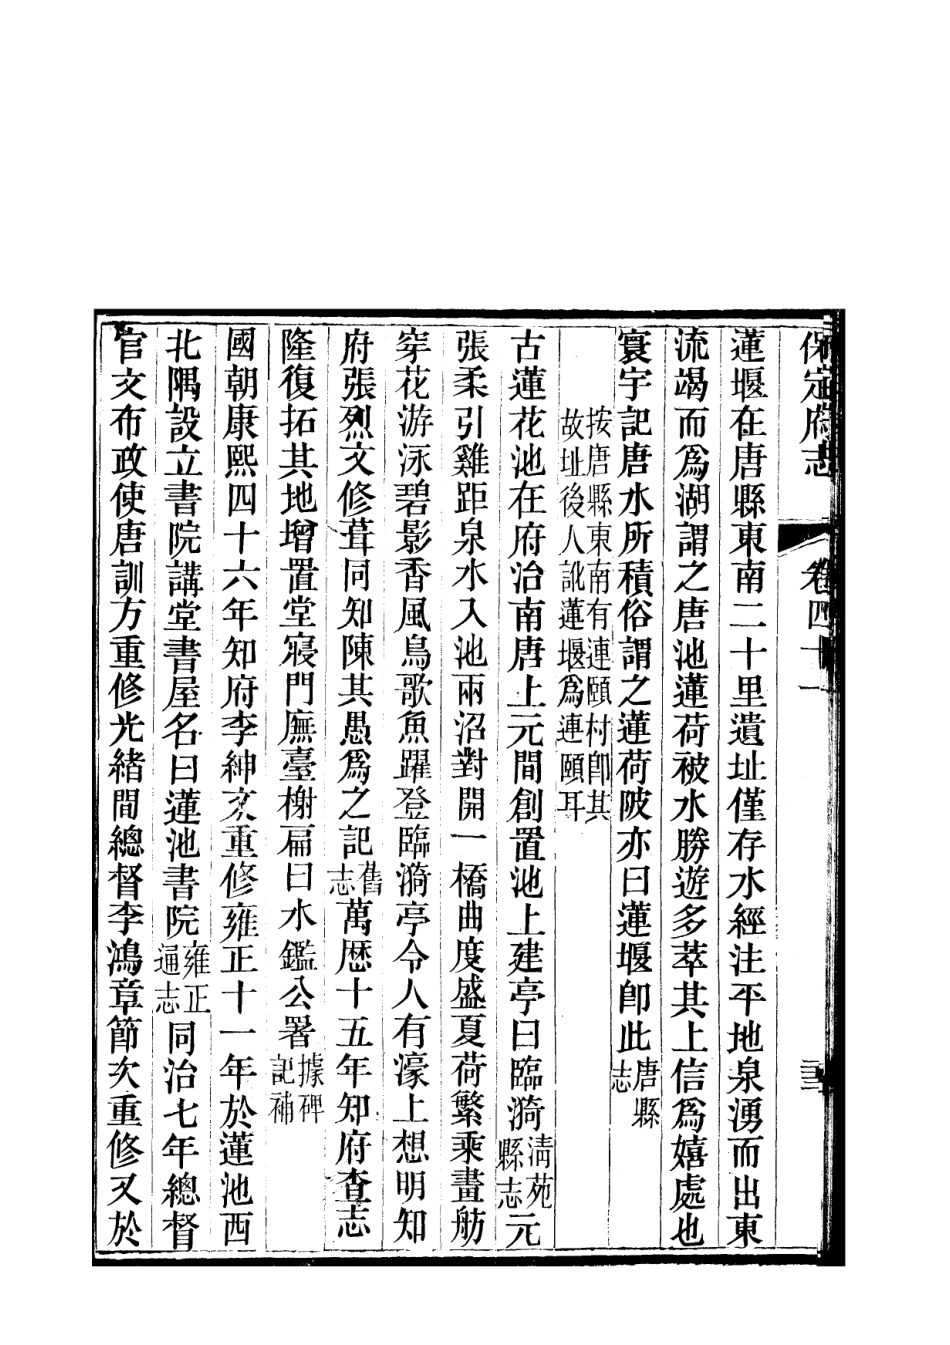 保定府志 卷四十一 三
蓮堰在唐縣東南二十里遺址僅存水經注平地泉湧而出東
流竭而爲湖謂之唐池蓮荷被水勝遊多萃其上信爲嬉處也
寰宇記唐水所積俗謂之蓮荷陂亦曰蓮堰卽此唐縣志
按唐縣東南有連頤村卽其
故址後人訛蓮堰爲連頤耳
古蓮花池在府治南唐上元間創置池上建亭曰臨漪清苑縣志元
張柔引雞距泉水入池兩沼對開一橋曲度盛夏荷繁乘畫舫
穿花游泳碧影香風鳥歌魚躍登臨漪亭令人有濠上想明知
府張烈文修葺同知陳其愚爲之記舊志萬歴十五年知府查志
隆復拓其地增置堂寢門廡臺榭扁曰水鑑公署據碑記補
國朝康熙四十六年知府李紳文重修雍正十一年於蓮池西
北隅設立書院講堂書屋名曰蓮池書院雍正通志同治七年總督
官文布政使唐訓方重修光緒間總督李鴻章節次重修又於